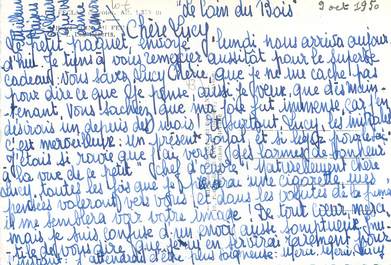 "de Coin du Bois"
9 oct 1950
Chère Lucy,
Le petit paquet, envoyé lundi nous arriva aujour
d'hui. Je tiens à vous remercier aussitôt pour le superbe
cadeau: vous savez, Lucy Chère, que je ne me cache pas
pour dire ce que je pense aussi je que dès main-
tenant, vous sachiez que ma joie fut immense, car j'en
désirais un depuis des mois! et surtout, Lucy, les initiales
c'est merveilleux: un présent royal et si
j'étais si ravie que j'ai versé des larmes de bonheur
à la vue de ce petit "chef d'œuvre"! Naturellement chère
Lucy, toutes les fois que je prendrai une cigarette mes
pensées voleront vers vous et dans les volutes de la fumée
il me semblera voir votre image! De tout cœur, merci
mais je suis confuse d'un envoi aussi somptueux. Inu-
tile de vous dire que je m'en servirai rarement pour
d'être plus soigneuse: